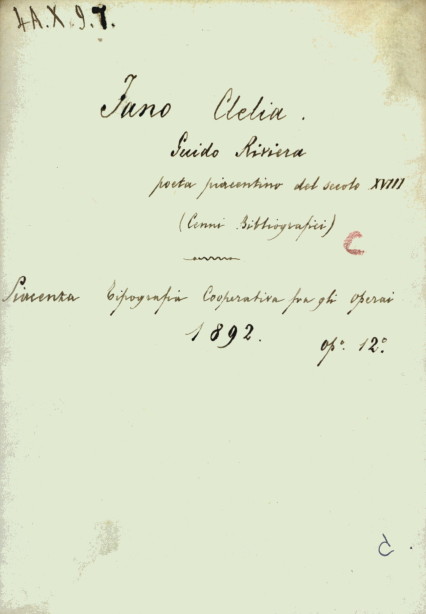 4A.X.9.7.
Fano Clelia.
Guido Riviera
poeta piacentino del secolo XVIII
(Cenni Bibliografici)
C
Piacenza Tipografia Cooperativa fra gli operai
1892.
op° 12°